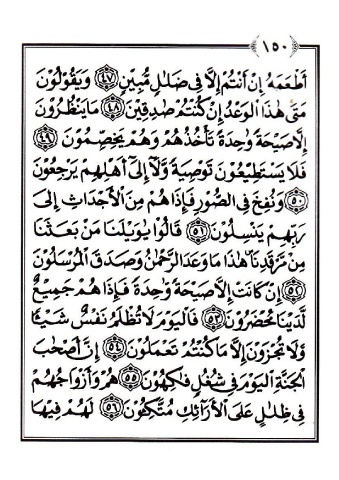 ١٥٠
أَطْعَمَهُۥٓ إِنْ أَنتُمْ إِلَّا فِى ضَلَـٰلٍ مُّبِينٍ ٤٧ وَيَقُولُونَ
مَتَىٰ هَـٰذَا ٱلْوَعْدُ إِن كُنتُمْ صَـٰدِقِينَ ٤٨ مَا يَنظُرُونَ
إِلَّا صَيْحَةً وَٰحِدَةً تَأْخُذُهُمْ وَهُمْ يَخِصِّمُونَ ٤٩
فَلَا يَسْتَطِيعُونَ تَوْصِيَةً وَلَآ إِلَىٰٓ أَهْلِهِمْ يَرْجِعُونَ
٥٠ وَنُفِخَ فِى ٱلصُّورِ فَإِذَا هُم مِّنَ ٱلْأَجْدَاثِ إِلَىٰ
رَبِّهِمْ يَنسِلُونَ ٥١ قَالُوا۟ يَـٰوَيْلَنَا مَنۢ بَعَثَنَا
مِن مَّرْقَدِنَا هَـٰذَا مَا وَعَدَ ٱلرَّحْمَـٰنُ وَصَدَقَ ٱلْمُرْسَلُونَ
٥٢ إِن كَانَتْ إِلَّا صَيْحَةً وَٰحِدَةً فَإِذَا هُمْ جَمِيعٌ
لَّدَيْنَا مُحْضَرُونَ ٥٣ فَٱلْيَوْمَ لَا تُظْلَمُ نَفْسٌ شَيْـًٔا
وَلَا تُجْزَوْنَ إِلَّا مَا كُنتُمْ تَعْمَلُونَ ٥٤ إِنَّ أَصْحَـٰبَ
ٱلْجَنَّةِ ٱلْيَوْمَ فِى شُغُلٍ فَـٰكِهُونَ ٥٥ هُمْ وَأَزْوَٰجُهُمْ
فِى ظِلَـٰلٍ عَلَى ٱلْأَرَآئِكِ مُتَّكِـُٔونَ ٥٦ لَهُمْ فِيهَا